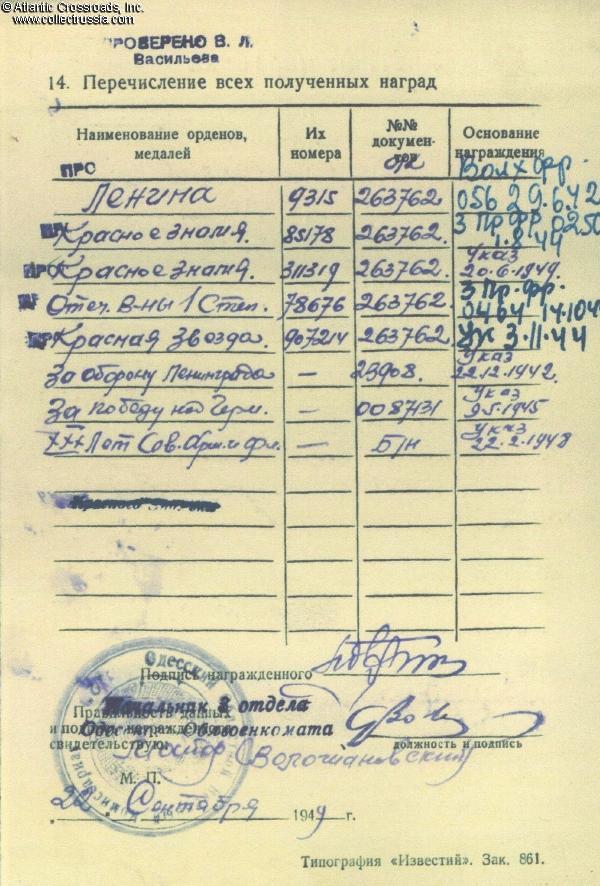 © Atlantic Crossroads, Inc.
www.collectrussia.com
ПРОВЕРЕНО В. Л.
Васильева
14. Перечисление всех полученных наград
Наименование орденов, медалей Их номера №№ документов Основание награждения
Ленина 9315 о/к 263762 Волх Фр. 056 29.6.42
Красное знамя. 85178 263762. 3 Пр.фр. 0250 1.8.44
Красное знамя. 311319 263762. Указ 20.6.1949.
Отеч. В-ны 1 Степ. 78676 263762. 3 Пр. Фр. 0464 14.10.4
Красная Звезда. 907214 263762. Ук 3.11.44
За оборону Ленинграда — 23908. Указ 22.12.1942.
За победу над Герм. — 0087131 Указ 9.5.1945
XXX Лет Сов. Арм. и Фл. — Б/н Указ 22.2.1948
Подпись награжденного
Начальник 3 отдела
Правильность данных
Одес Облвоенкомата
и подпись награжденного
свидетельствую:
должность и подпись
М. П.
20 Сентября 1949 г.
Типография «Известий». Зак. 861.